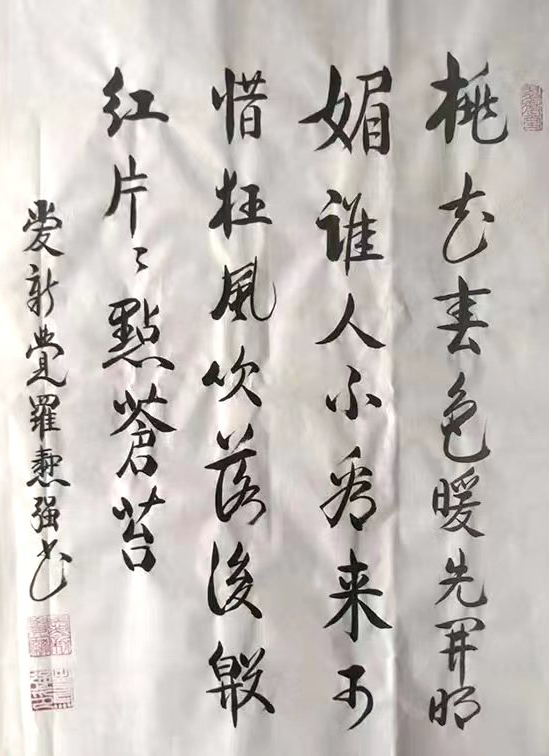 桃花春色暖先開明
媚誰人不看來可
惜狂風吹落後殷
紅片〻點蒼苔
愛新覺羅勲强书